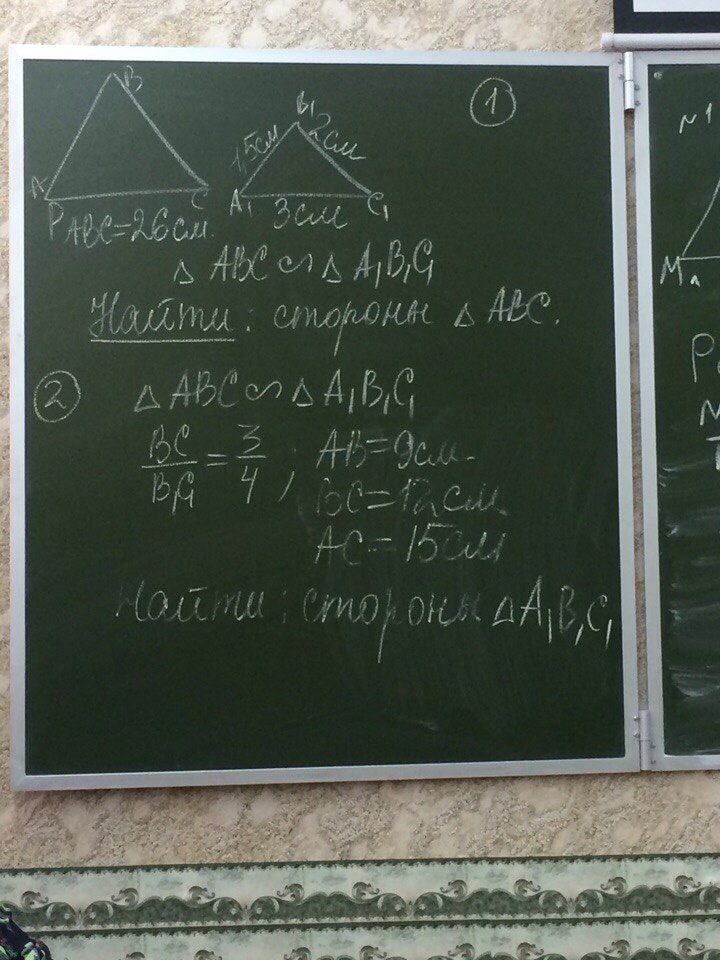 1
B
A
C
P ABC=26см.
B₁
1,5см
2см
A₁
C₁
3см
△ ABC ∽ △ A₁B₁C₁
Найти: стороны △ ABC.
2
△ ABC ∽ △ A₁B₁C₁
BC/B₁C₁ = 3/4; AB=9см
BC=12см
AC=15см
Найти: стороны △ A₁B₁C₁
N1
M